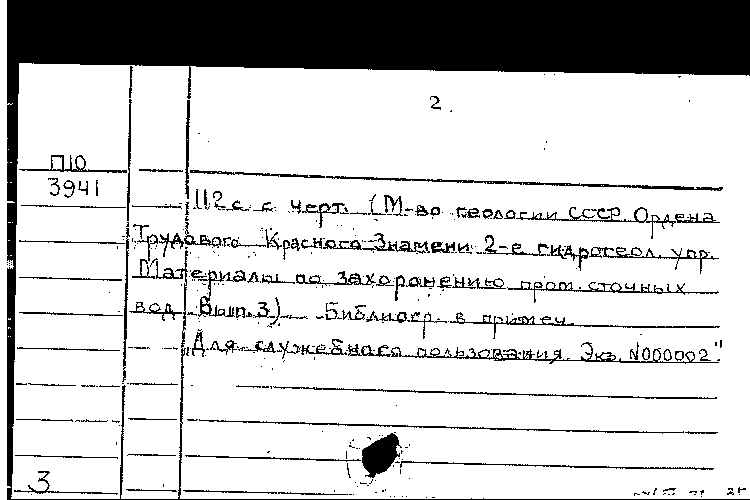 2.
П10
3941
112 с. с черт. (М-во геологии СССР. Ордена
Трудового Красного Знамени 2-е гидрогеол. упр.
Материалы по захоронению пром. сточных
вод. Вып. 3). Библиогр. в примеч.
„Для служебного пользования. Экз. №000002".
3